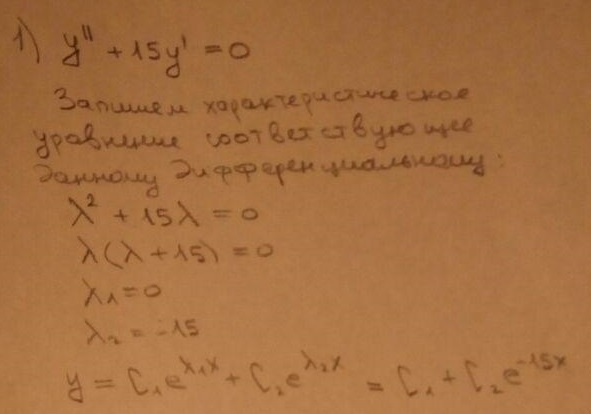 1) y'' + 15y' = 0
Запишем характеристическое
уравнение соответствующее
данному дифференциальному:
λ² + 15λ = 0
λ(λ + 15) = 0
λ₁ = 0
λ₂ = -15
y = C₁e^{λ₁x} + C₂e^{λ₂x} = C₁ + C₂e^{-15x}